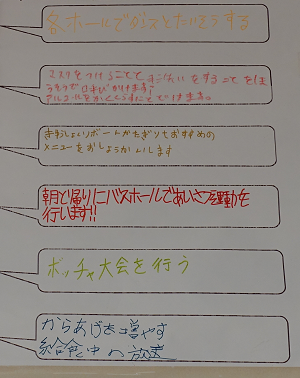 各ホールでダンスとたいそうする
マスクをつけることと すいたいをすることをほ
うそうがよびかけます
アルコールをかくくうすこてでつけます。
きゅうしょくリポートかたぎりもおすすめの
メニューをおしょうかいします
朝と帰りにバスホールであいさつ運動を
行います!!
ボッチャ大会を行う
からあげを増やす
給食中の放送